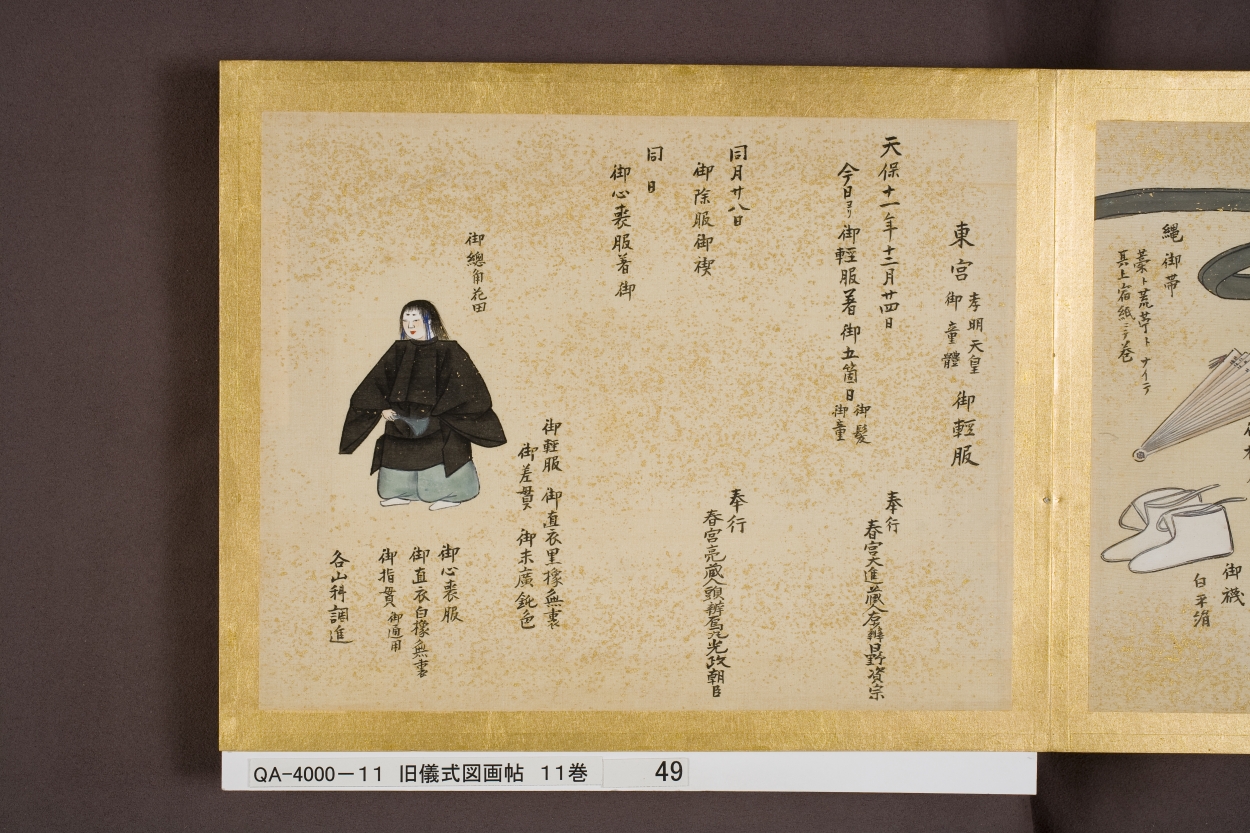 縄御帯
藁ト荒苧トナイテ
其上宿紙ニテ巻
御襪
白平絹
東宮 孝明天皇 御童體 御輕服
天保十一年十二月廿四日
今日ヨリ御輕服著御五箇日 御髪 御童
奉行
春宮大進蔵人左少辨日野資宗
同月廿八日
御除服御禊
奉行
春宮亮蔵人頭辨 光政朝臣
同日
御心喪服著御
御總角花田
御輕服 御直衣黒橡無裏
御差貫 御末廣鈍色
御心喪服
御直衣白橡無裏
御指貫 御通用
各山科調進
QA-4000-11 旧儀式図画帖 11巻 49